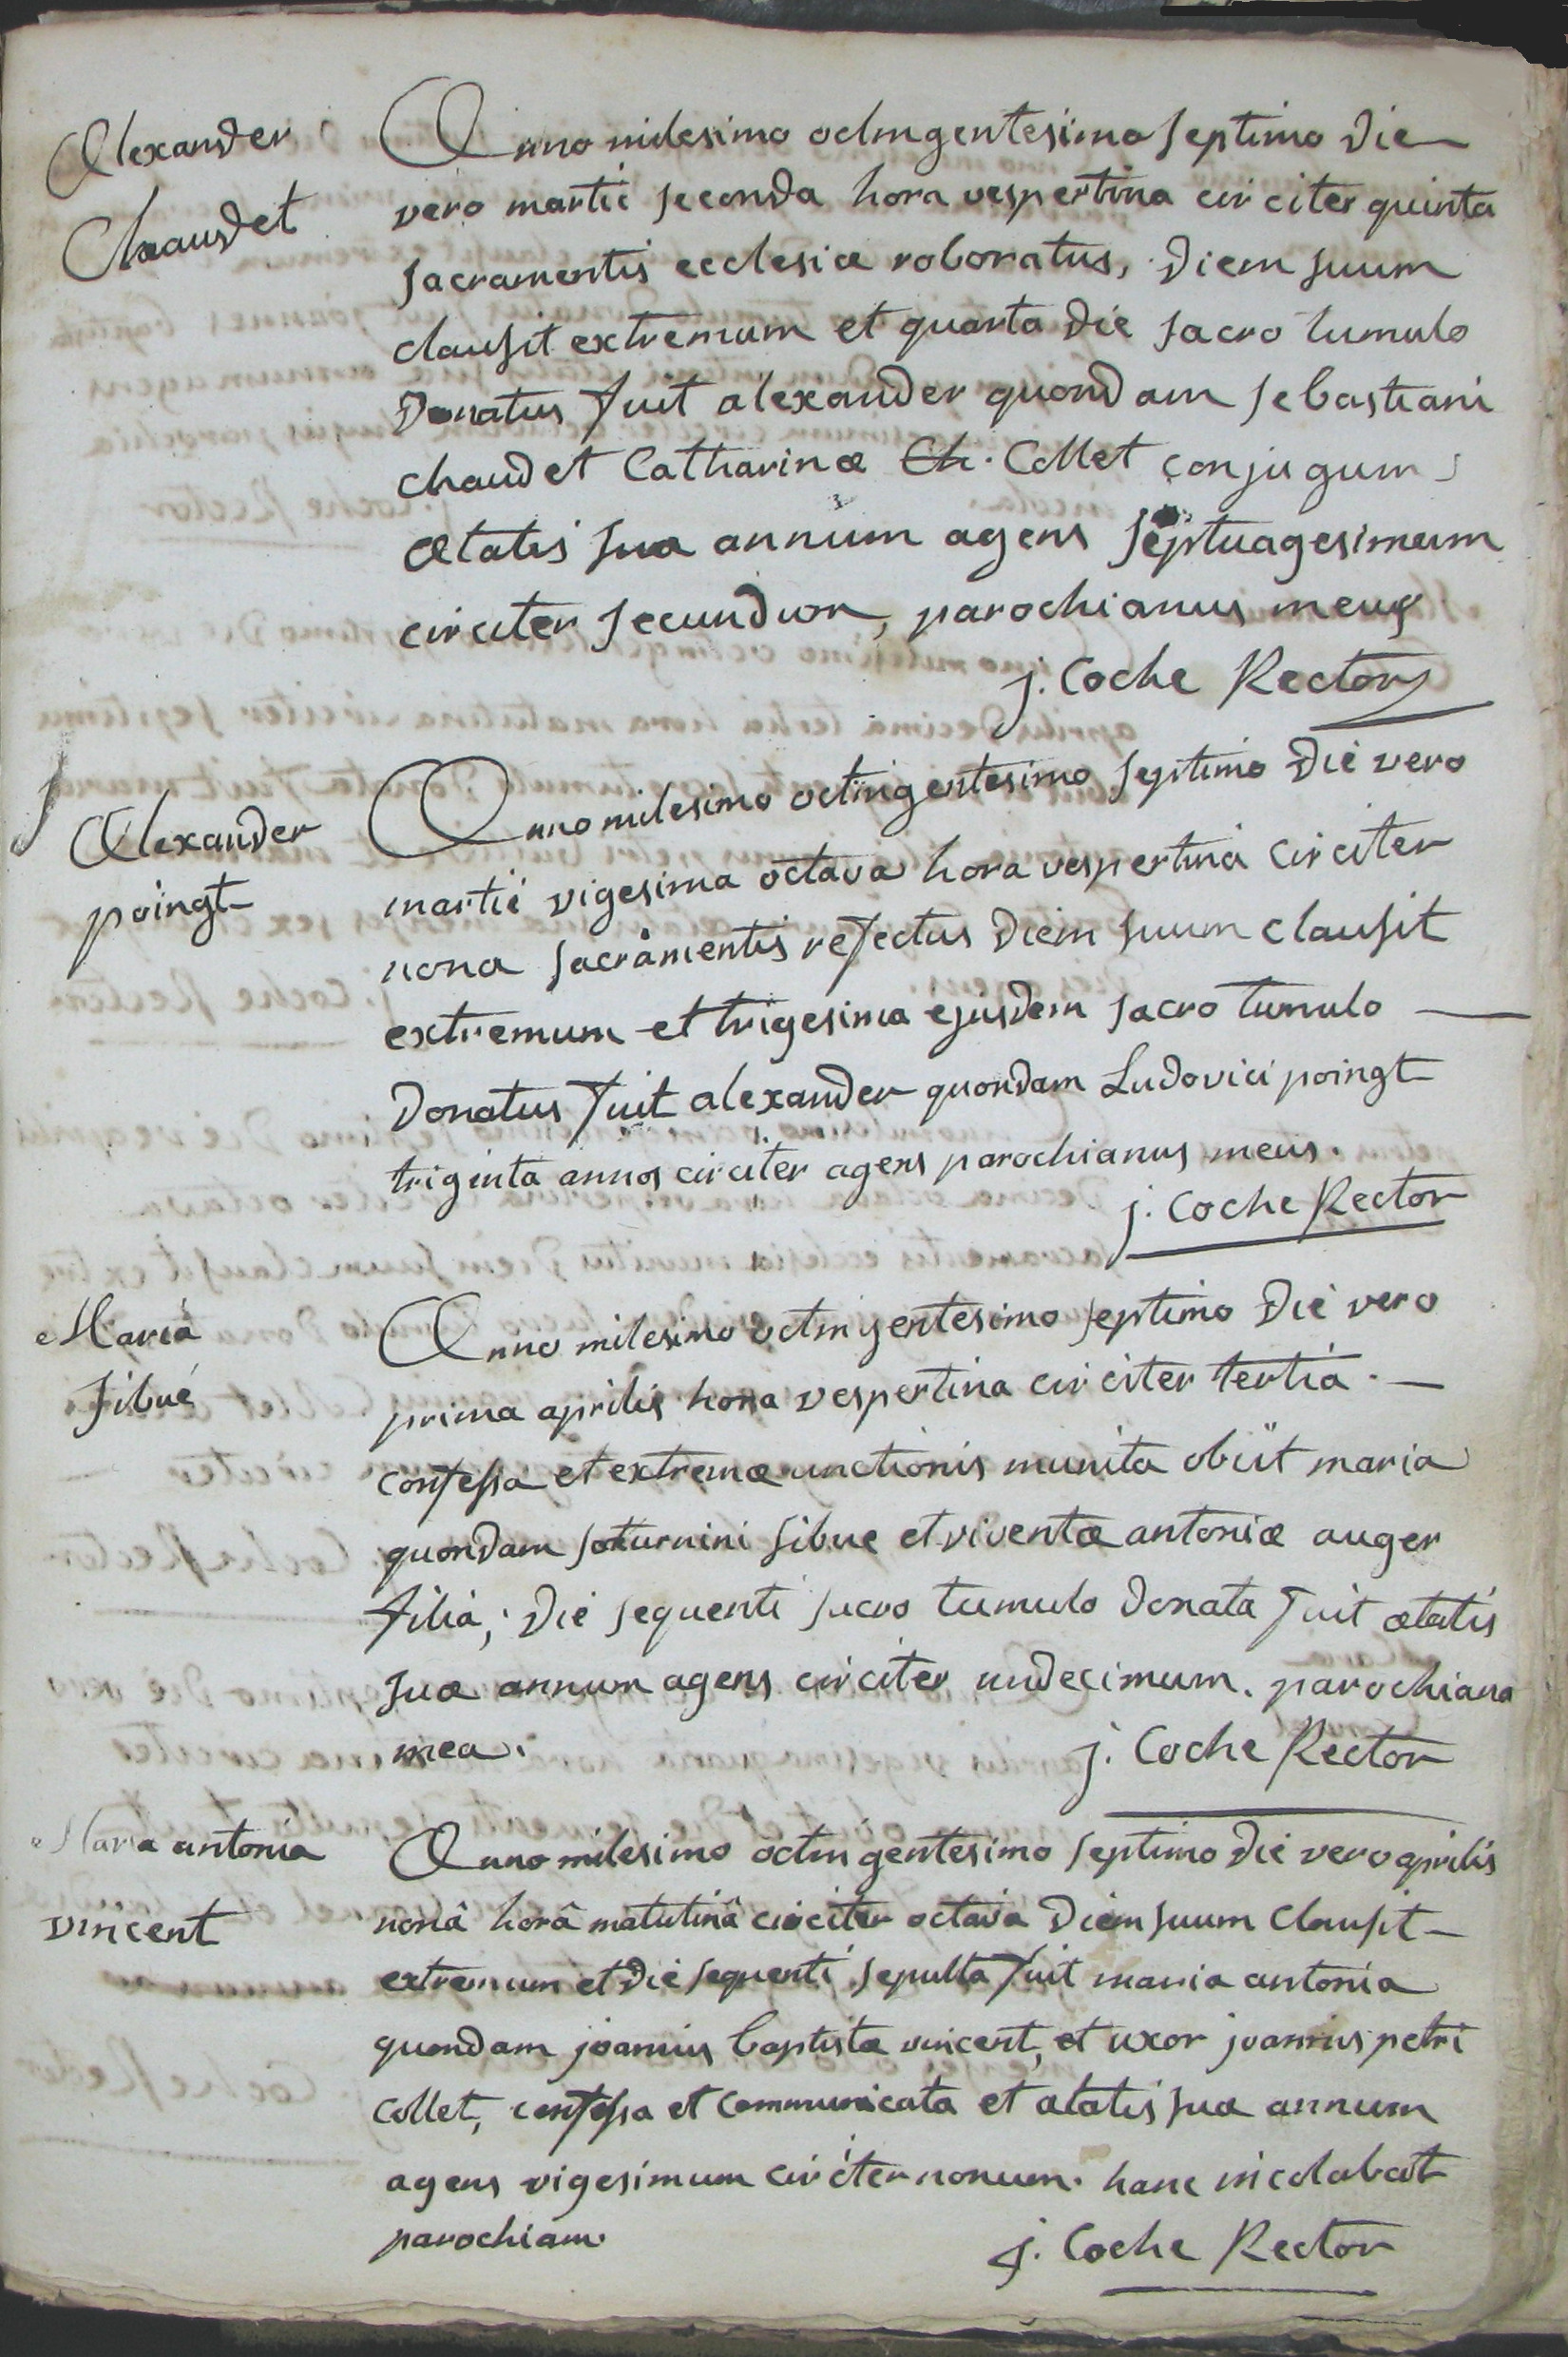 Alexander
Chaudet
Anno milesimo octingentesimo septimo die
vero martii seconda hora vespertina circiter quinta
sacramentis ecclesiæ roboratus, diem suum
clausit extremum et quarta die sacro tumulo
donatus fuit alexander quondam sebastiani
chaudet Catharinæ Ch. Collet conjugum,
ætatis suæ annum agens septuagesimum
circiter secundum, parochianus meus
j. Coche Rector
Alexander
poingt
Anno milesimo octingentesimo septimo die vero
martii vigesima octava hora vespertina circiter
nona sacramentis refectus diem suum clausit
extremum et trigesima ejusdem sacro tumulo
donatus fuit alexander quondam Ludovici poingt
triginta annos circiter agens parochianus meus.
j. Coche Rector
Maria
Sibué
Anno milesimo octingentesimo septimo die vero
prima aprilis hora vespertina circiter tertia.
confessa et extremæ unctionis munita obiit maria
quondam saturnini sibue et viventæ antoniæ auger
filia; die sequenti sacro tumulo donata fuit ætatis
suæ annum agens circiter undecimum. parochiana
mea.
j. Coche Rector
Maria antonia
vincent
Anno milesimo octingentesimo septimo die vero aprilis
nonâ horâ matutinâ circiter octava diem suum clausit
extremum et die sequenti sepulta fuit maria antonia
quondam joannis baptistæ vincent, et uxor joannis petri
Collet, confessa et communicata et ætatis suæ annum
agens vigesimum circiter nonum. hanc incolabat
parochiam.
j. Coche Rector